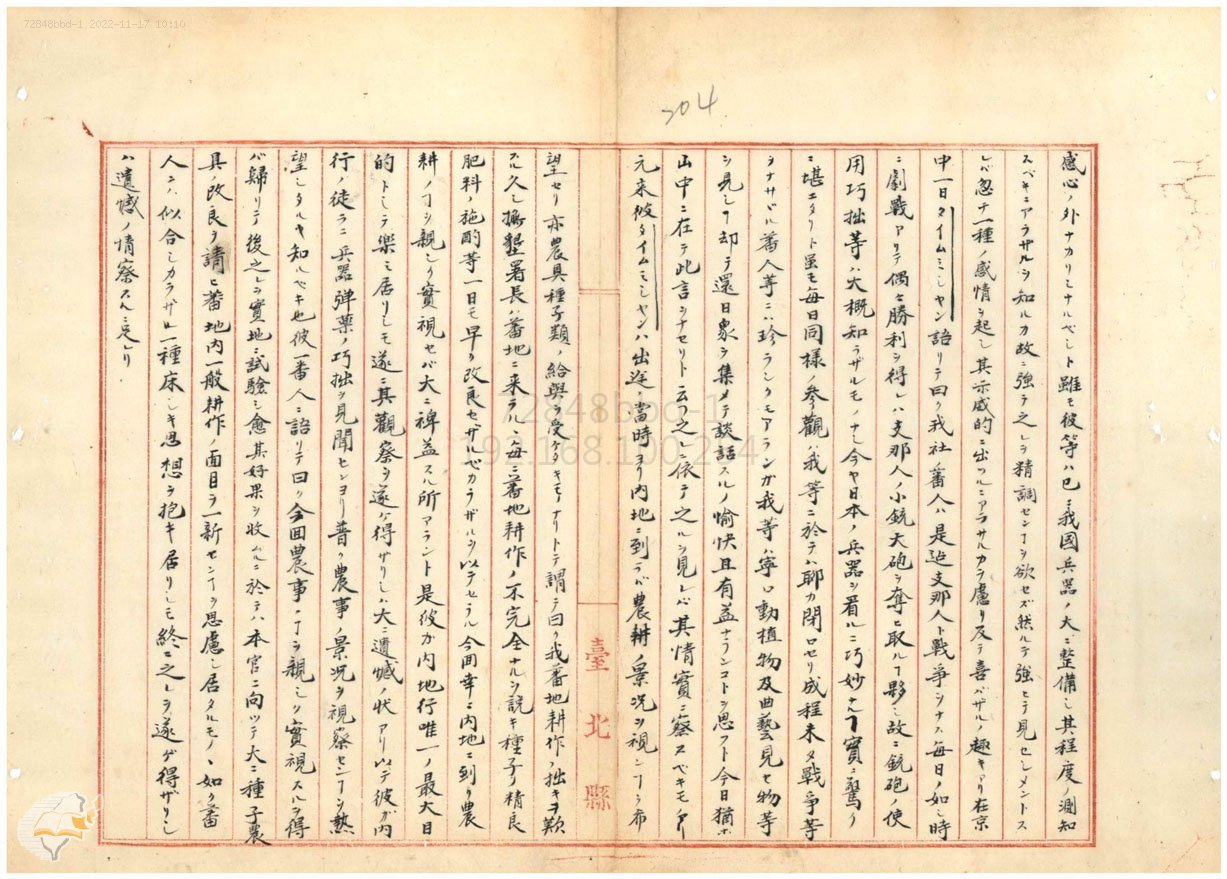 72848bbd-1 2022-11-17 10:10
204
感心ノ外ナカリシナルベシト雖モ彼等ハ已ニ我國兵器ノ大ニ整備シ其程度ノ測知
スベキニアラザルヲ知ルカ故ニ強テ之レヲ精調センヿヲ欲セズ然ルヲ強ヒテ見セシメントス
レバ忽ナ一種ノ感情ヲ起シ其示威的ニ出ツルニアラサルカヲ慮リ反テ喜バザルノ趣キアリ在京
中一日タイムミシヤン語リテ曰ク我社蕃人ハ是迄支那人ト戰爭ヲナス毎日ノ如シ時
ニ劇戰アリテ偶々勝利ヲ得レハ支那人ノ小銃大砲ヲ奪ヒ取ルヿ夥シ故ニ銃砲ノ使
用巧拙等ハ大概知ラザルモノナシ今ヤ日本ノ兵器ヲ看ルニ巧妙ナルヿ實ニ驚ク
ニ堪エタリト虽モ毎日同様ノ參觀ハ我等ニ於テハ聊カ閉口セリ成程未タ戰爭等
ヲナサバル蕃人等ニハ珍ラシクモアランガ我等ハ寧ロ動植物及曲藝見セ物等
ヲ見テ却テ還日衆ヲ集メテ談話スルノ愉快且有益ナランコトヲ思フト今日猶ホ
山中ニ在テ此言ヲナセリト云フ之ニ依テ之ルヲ見レバ其情實ニ察スベキモノアリ
元来彼タイムミシヤンハ出迎ノ當時ヨリ内地ニ到ラバ農耕ノ景況ヲ視ンヿヲ希
臺北縣
望セリ亦農具種子類ノ給與ヲ受ケタキモノナリトテ謂テ曰ク我蕃地耕作ノ拙キヲ歎
スル久シ撫墾署長ハ蕃地ニ来ラルヽ毎ニ蕃地耕作ノ不完全ナルヲ説キ種子ノ精良
肥料ノ施酌等一日モ早ク改良セザルベカラザルヲ以テセラル今回幸ニ内地ニ到リ農
耕ノヿヲ親シク實視セバ大ニ裨益スル所アラント是彼ガ内地行唯一ノ最大目
的トシテ樂ミ居リシモ遂ニ其觀察ヲ遂ケ得サリシハ大ニ遺憾ノ状アリ以テ彼ガ内
行ノ徒ラニ兵器弾藥ノ巧拙ヲ見聞センヨリ普ク農事ノ景况ヲ視察センヿヲ熱
望シタルヤ知ルベキ也彼一番人ニ語リテ曰ク今回農事ノヿヲ親シク實視スルヲ得
バ歸リテ後之レヲ實地ニ試驗シ愈其好果ヲ收ムルニ於テハ本官ニ向ツテ大ニ種子農
具ノ改良ヲ請ヒ蕃地内一般耕作ノ面目ヲ一新センヿヲ思慮シ居タルモノヽ如ク蕃
人ニハ似合シカラザル一種床シキ思想ヲ抱キ居リシモ終ニ之レヲ遂ゲ得ザリシ
ハ遺憾ノ情察スルニ足レリ
72848bbd-1